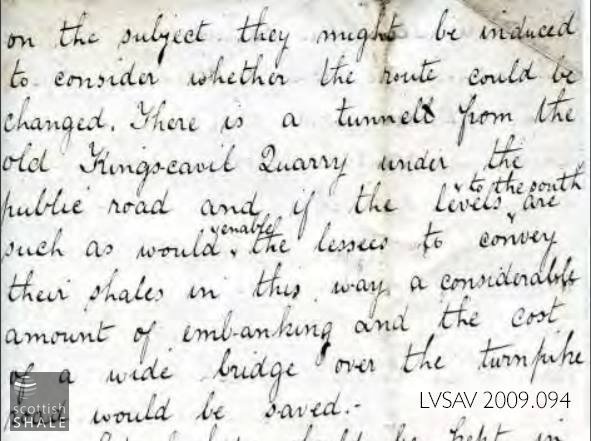 on the subject they might be induced
to consider whether the route could be
changed. There is a tunnell from the
old Kingscavil Quarry under the
to the south
public road and if the levels are
enable
such as would the lessees to convey
their shales in this way a considerable
amount of embanking and the cost
of a wide bridge over the turnpike
would be saved.-
LVSAV 2009.094
scottish
SHALE